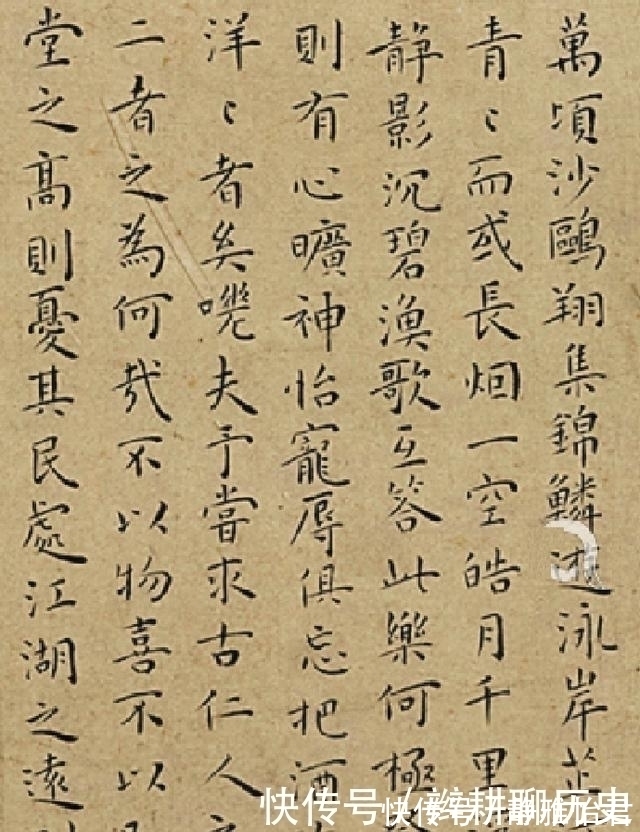 萬頃沙鷗翔集錦鱗遊泳岸芷
青〻而或長烟一空皓月千里
靜影沉碧漁歌互答此樂何極
則有心曠神怡寵辱俱忘把酒
洋〻者矣嗟夫予嘗求古仁人
二者之為何哉不以物喜不以
堂之高則憂其民處江湖之遠
快传号
快传号